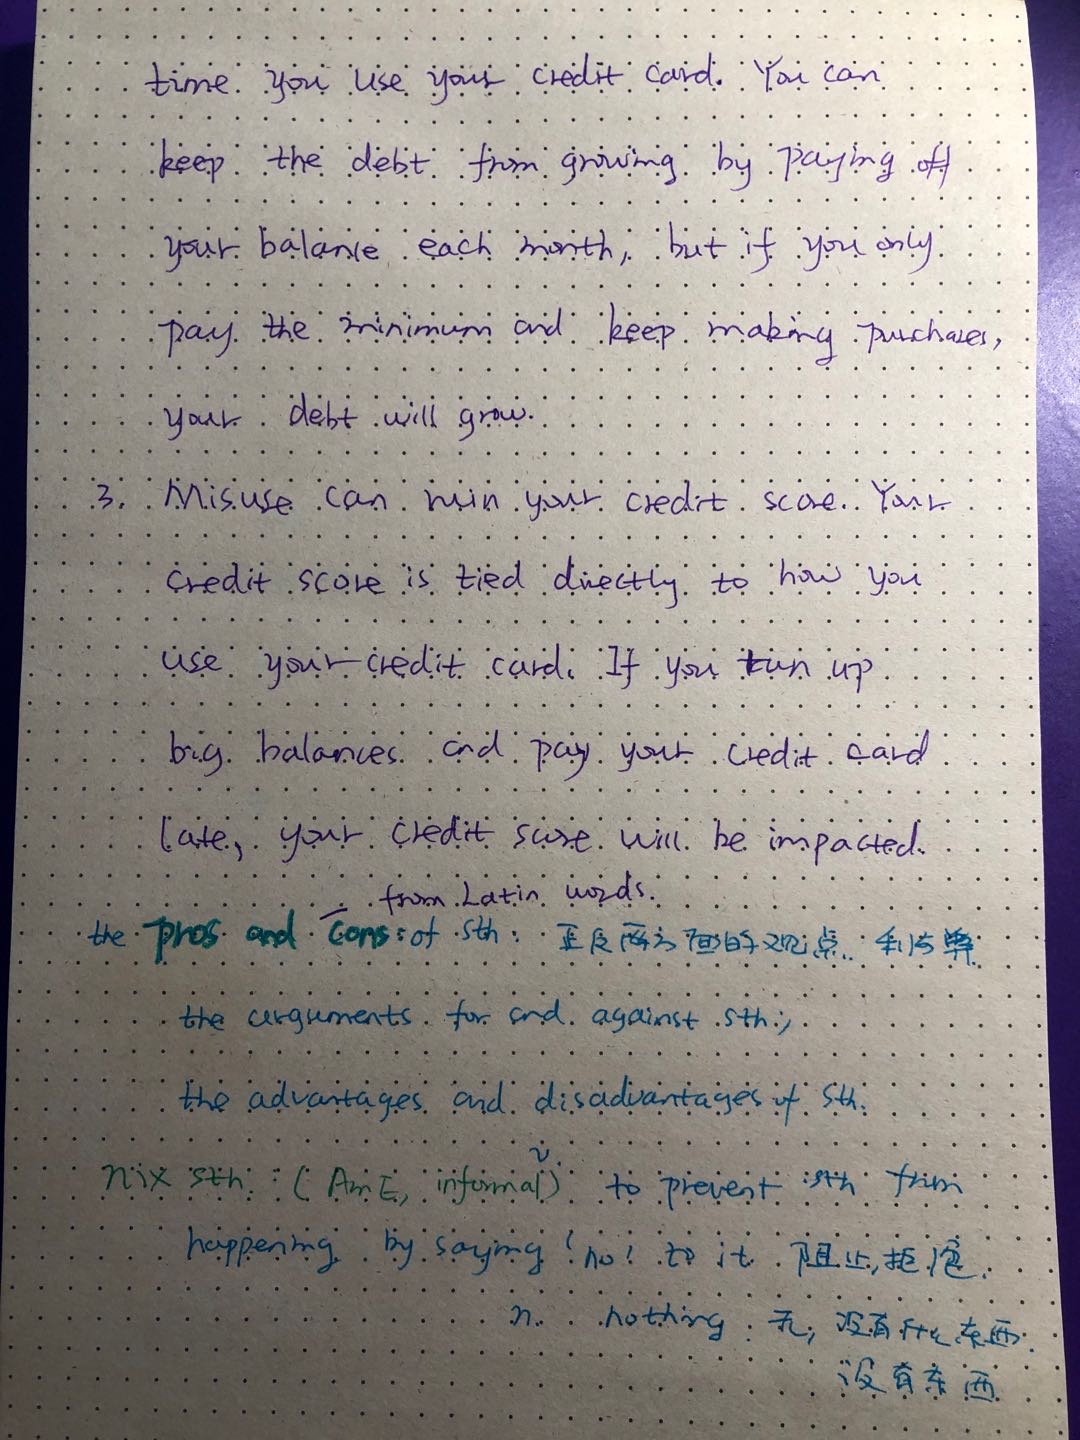 time you use your credit card. You can
keep the debt from growing by paying off
your balance each month, but if you only
pay the minimum and keep making purchases,
your debt will grow.
3. Misuse can ruin your credit score. Your
credit score is tied directly to how you
use your credit card. If you run up
big balances and pay your credit card
late, your credit score will be impacted.
from Latin words.
the pros and cons: of sth: 正反两方面的观点. 利与弊
the arguments for and against sth;
the advantages and disadvantages of sth.
v.
nix sth. (AmE, informal) to prevent sth from
happening by saying 'no' to it 阻止,拒绝.
n. nothing 无, 没有什么东西.
没有东西